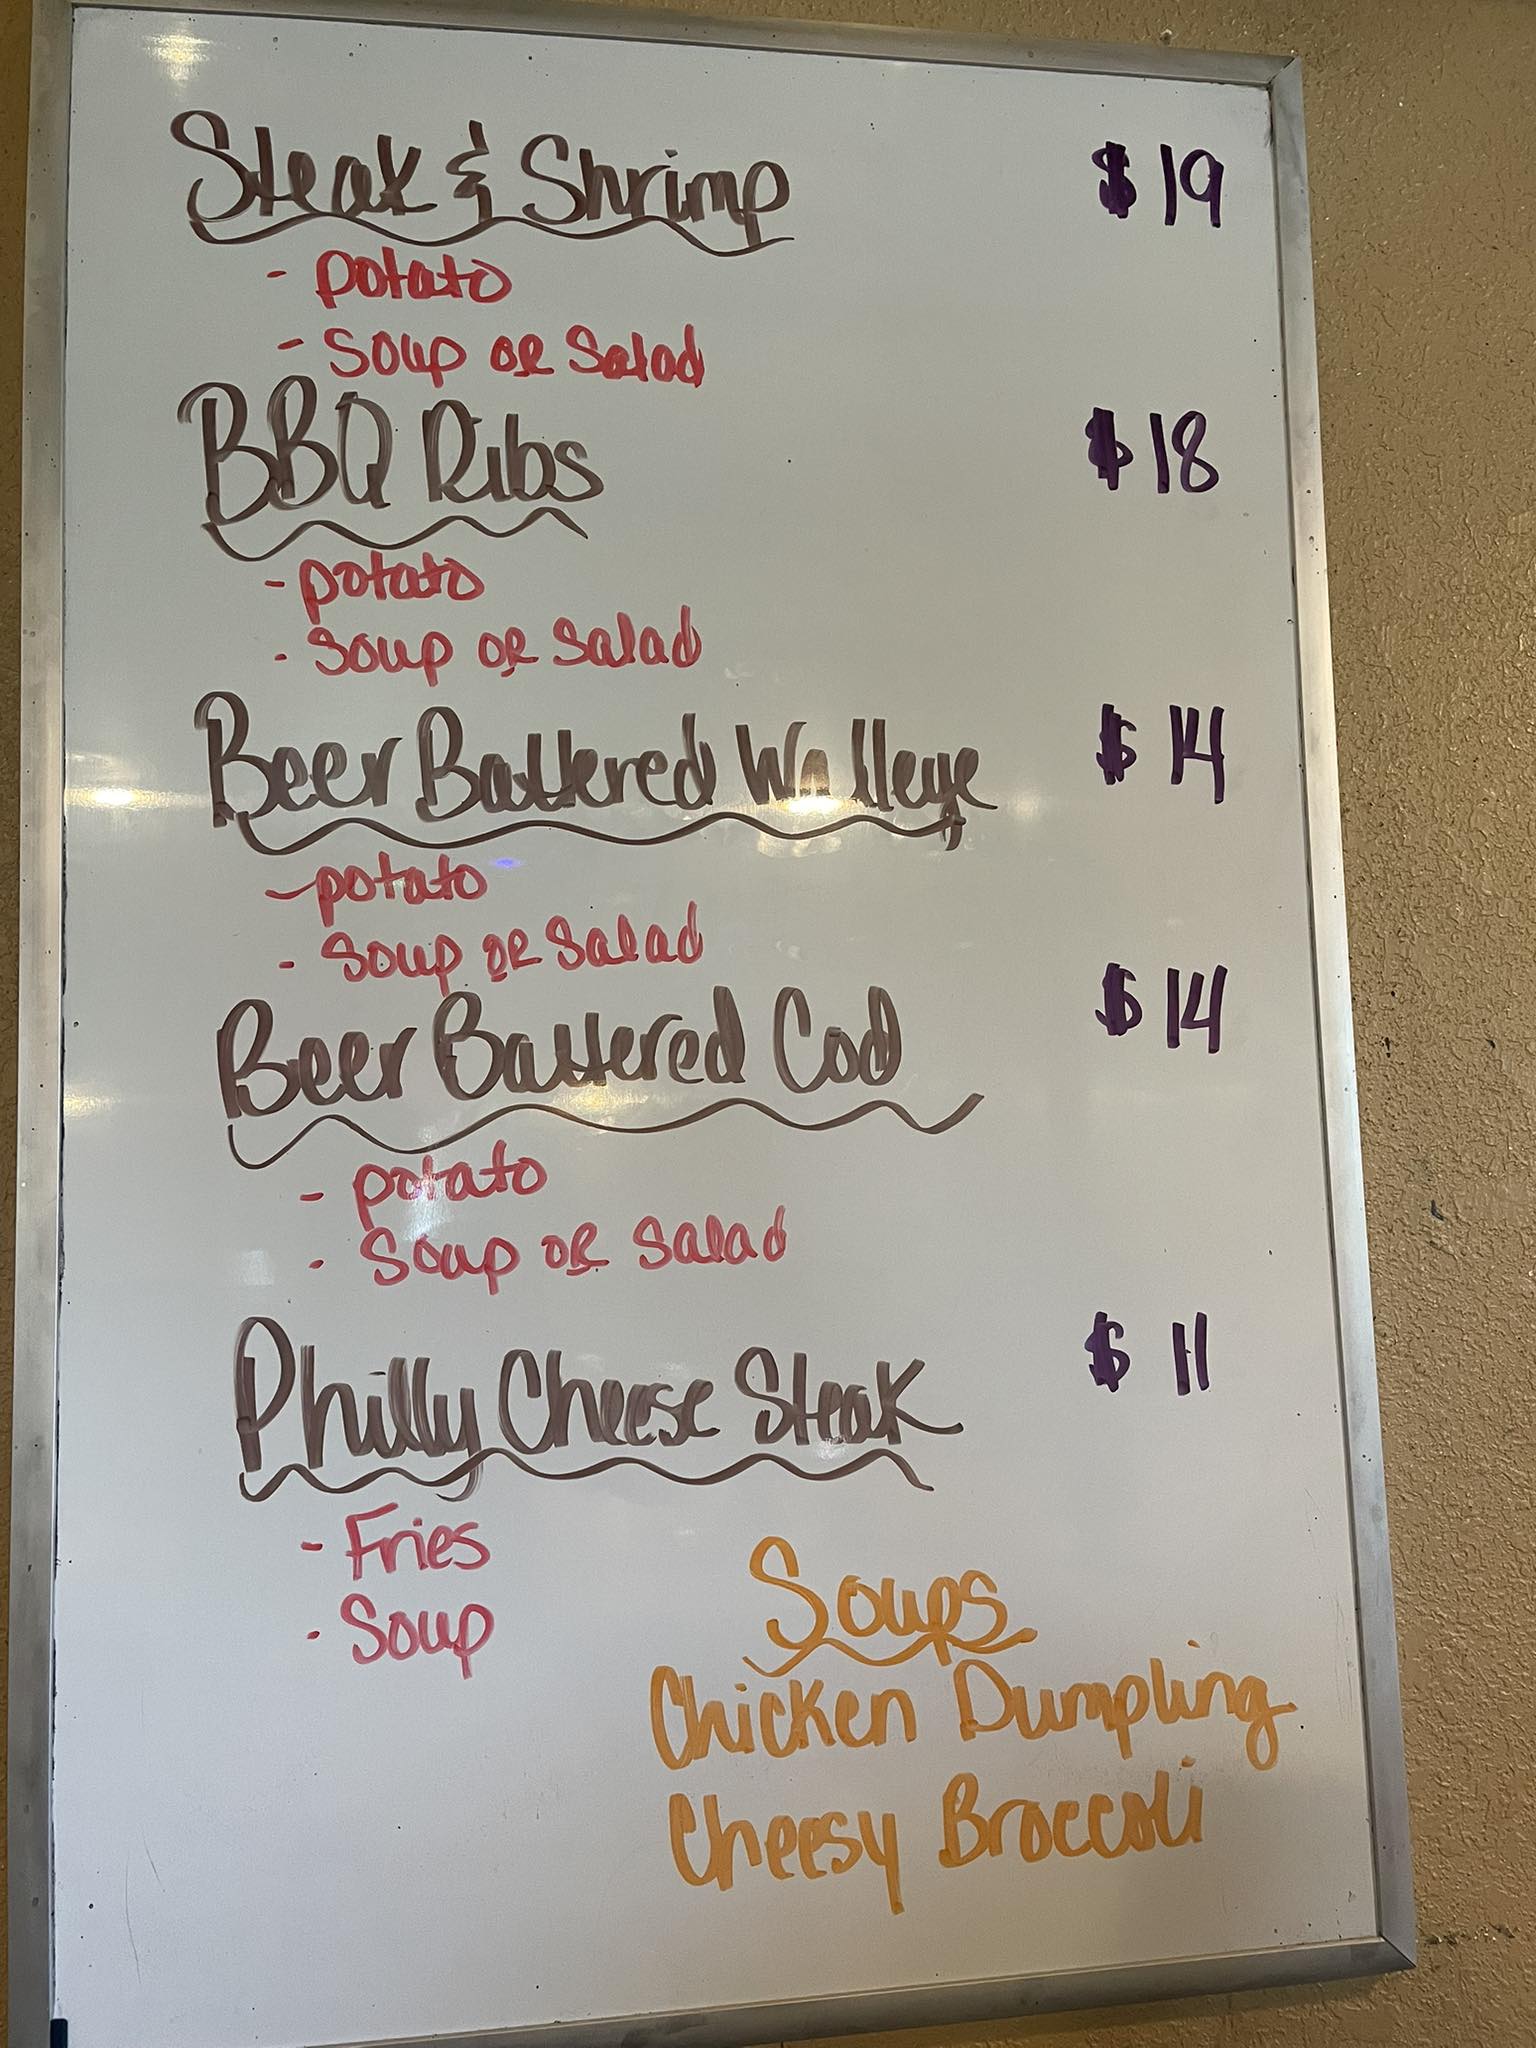 Steak & Shrimp $19
- potato
- Soup OR Salad
BBQ Ribs $18
- potato
- Soup OR Salad
Beer Battered Walleye $14
- potato
- Soup OR Salad
Beer Battered Cod $14
- potato
- Soup OR Salad
Philly Cheese Steak $11
- Fries
- Soup
Soups
Chicken Dumpling
Cheesy Broccoli